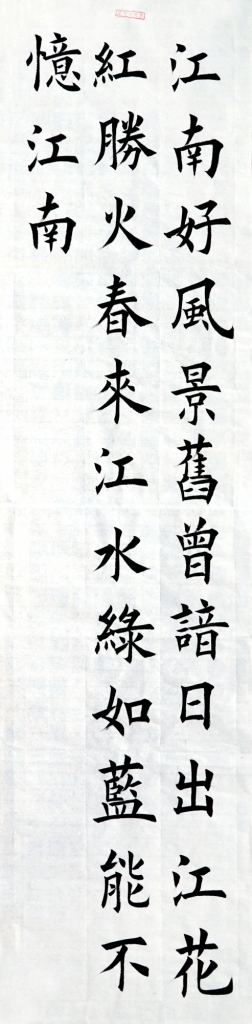 江南好風景舊曾諳日出江花
紅勝火春來江水綠如藍能不
憶江南